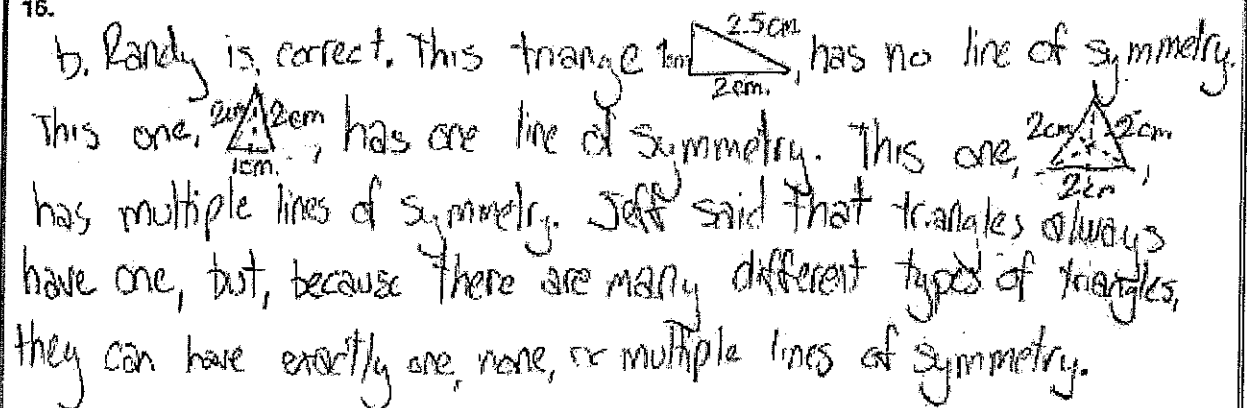 15.
b. Randy is correct. This triange 1cm 2.5cm 2cm., has no line of symmetry.
This one, 2cm 2cm 1cm., has one line of symmetry. This one, 2cm 2cm 2cm,
has multiple lines of symmetry. Jeff said that triangles always
have one, but, because there are many different types of triangles,
they can have exactly one, none, or multiple lines of symmetry.